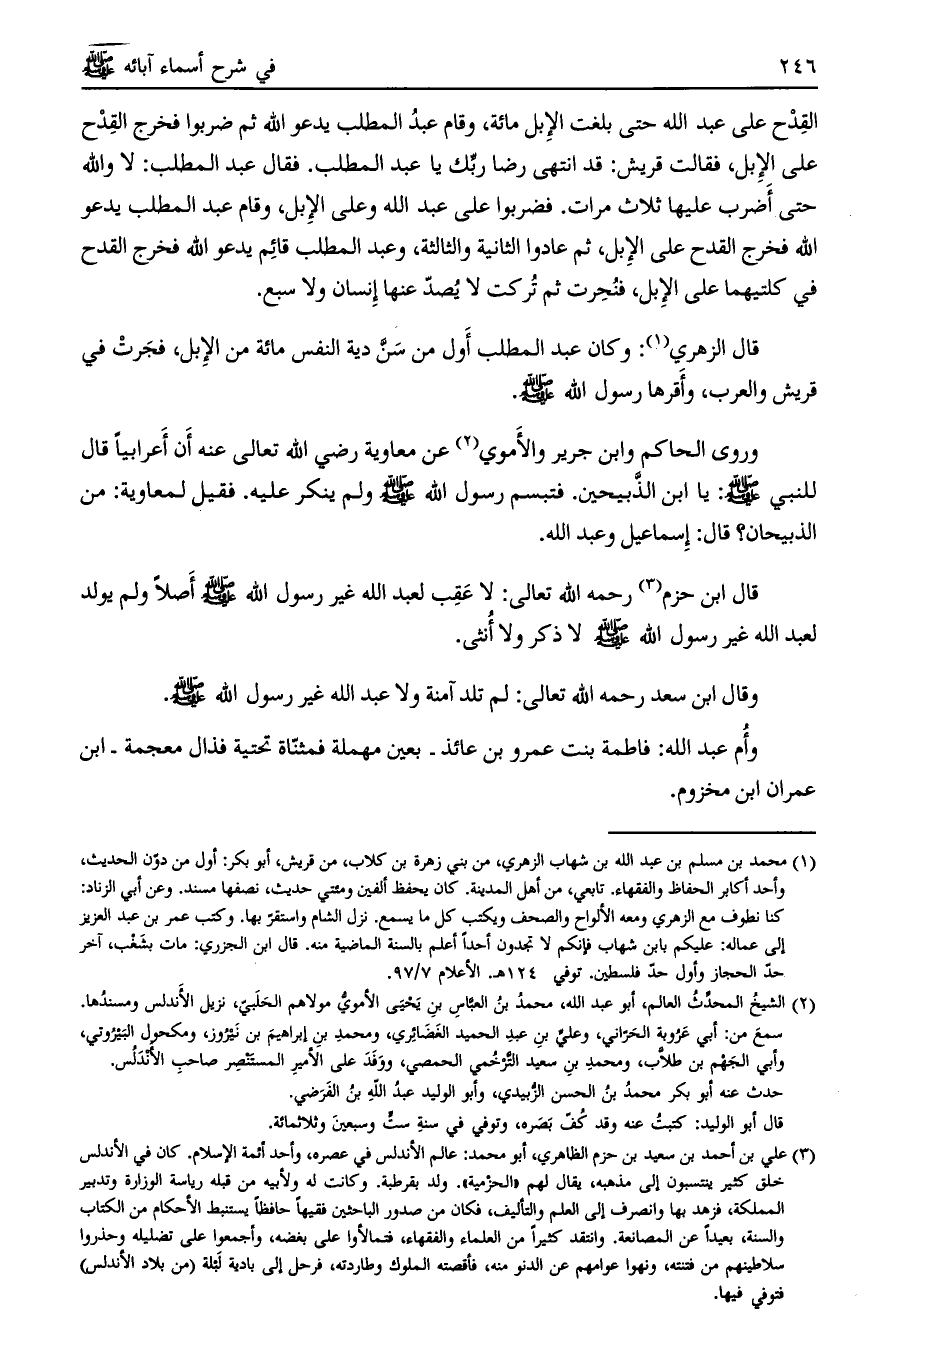 ٢٤٦ في شرح أسماء آبائه ﷺ
القِدْح على عبد الله حتى بلغت الإِبل مائة، وقام عبدُ المطلب يدعو الله ثم ضربوا فخرج القِدْح
على الإِبل، فقالت قريش: قد انتهى رضا ربِّك يا عبد المطلب. فقال عبد المطلب: لا والله
حتى أَضرب عليها ثلاث مرات. فضربوا على عبد الله وعلى الإِبل، وقام عبد المطلب يدعو
الله فخرج القدح على الإِبل، ثم عادوا الثانية والثالثة، وعبد المطلب قائِم يدعو الله فخرج القدح
في كلتيهما على الإِبل، فنُحِرت ثم تُركت لا يُصدّ عنها إِنسان ولا سبع.
قال الزهري(١): وكان عبد المطلب أَول من سَنَّ دية النفس مائة من الإِبل، فجَرتْ في
قريش والعرب، وأَقرها رسول الله ﷺ.
وروى الحاكم وابن جرير والأَموي(٢) عن معاوية رضي الله تعالى عنه أَن أَعرابياً قال
للنبي ﷺ: يا ابن الذَّبيحين. فتبسم رسول الله ﷺ ولم ينكر عليه. فقيل لمعاوية: من
الذبيحان؟ قال: إِسماعيل وعبد الله.
قال ابن حزم(٣) رحمه الله تعالى: لا عَقِب لعبد الله غير رسول الله ﷺ أَصلاً ولم يولد
لعبد الله غير رسول الله ﷺ لا ذكر ولا أُنثى.
وقال ابن سعد رحمه الله تعالى: لم تلد آمنة ولا عبد الله غير رسول الله ﷺ.
وأُم عبد الله: فاطمة بنت عمرو بن عائذ ـ بعين مهملة فمثنّاة تحتية فذال معجمة ـ ابن
عمران ابن مخزوم.
(١) محمد بن مسلم بن عبد الله بن شهاب الزهري، من بني زهرة بن كلاب، من قريش، أبو بكر: أول من دوّن الحديث،
وأحد أكابر الحفاظ والفقهاء. تابعي، من أهل المدينة. كان يحفظ ألفين ومئتي حديث، نصفها مسند. وعن أبي الزناد:
كنا نطوف مع الزهري ومعه الألواح والصحف ويكتب كل ما يسمع. نزل الشام واستقرّ بها. وكتب عمر بن عبد العزيز
إلى عماله: عليكم بابن شهاب فإنكم لا تجدون أحداً أعلم بالسنة الماضية منه. قال ابن الجزري: مات بشَغْب، آخر
حدّ الحجاز وأول حدّ فلسطين. توفي ١٢٤هـ. الأعلام ٩٧/٧.
(٢) الشيخُ المحدِّثُ العالم، أبو عبد الله، محمدُ بنُ العبَّاسِ بنِ يَحْيَى الأمويُّ مولاهم الحَلَبيّ، نزيل الأَندلس ومسندُها.
سمعَ من: أبي عَرُوبة الحَرّاني، وعليِّ بنِ عبدِ الحميد الغَضَائِري، ومحمدِ بنِ إبراهيمَ بن نَيْرُوز، ومكحول البَيْرُوتي،
وأبي الجَهْم بن طلاَّب، ومحمدِ بنِ سعيد التَّرْخُمي الحمصي، ووَفَدَ على الأميرِ المستَنْصِر صاحبِ الأَنْدَلُس.
حدث عنه أبو بكر محمدُ بنُ الحسن الزُّبيدي، وأبو الوليد عبدُ اللَّهِ بنُ الفَرَضي.
قال أبو الوليد: كتبتُ عنه وقد كُفّ بَصَره، وتوفي في سنةِ ستٍّ وسبعينَ وثلاثمائة.
(٣) علي بن أحمد بن سعيد بن حزم الظاهري، أبو محمد: عالم الأندلس في عصره، وأحد أئمة الإسلام. كان في الأندلس
خلق كثير ينتسبون إلى مذهبه، يقال لهم «الحزْمية». ولد بقرطبة. وكانت له ولأبيه من قبله رياسة الوزارة وتدبير
المملكة، فزهد بها وانصرف إلى العلم والتأليف، فكان من صدور الباحثين فقيهاً حافظاً يستنبط الأحكام من الكتاب
والسنة، بعيداً عن المصانعة. وانتقد كثيراً من العلماء والفقهاء، فتمالأوا على بغضه، وأجمعوا على تضليله وحذروا
سلاطينهم من فتنته، ونهوا عوامهم عن الدنو منه، فأقصته الملوك وطاردته، فرحل إلى بادية لَبْلة (من بلاد الأندلس)
فتوفي فيها.